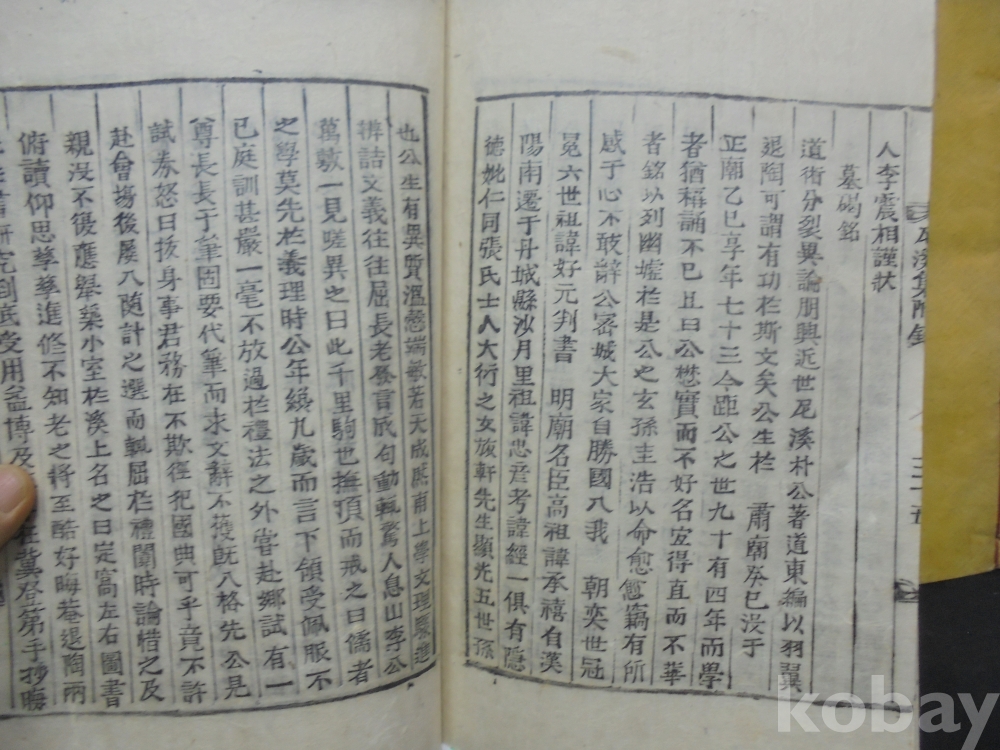 瓦溪集附錄
人李震相謹狀
墓碣銘
道術分裂異論朋興近世瓦溪朴公著道東編以羽翼
退陶可謂有功於斯文矣公生於 肅廟癸巳沒于
正廟乙巳享年七十三今距公之世九十有四年而學
者猶稱誦不已且曰公懋實而不好名宜得直而不華
者銘以列幽墟於是公之玄孫主浩以命愈愈竊有所
感于心不敢辭公密城大家自勝國入我 朝奕世冠
冕六世祖諱好元判書 明廟名臣高祖諱承禧自漢
陽南遷于丹城縣沙月里祖諱忠彦考諱經一俱有隱
德妣仁同張氏士人大衍之女旅軒先生顯光五世孫
也公生有異質溫慤端敏若天成庶甫上學文理驟進
辨詰文義往往屈長老發言成句動輒驚人息山李公
萬敷一見嗟異之曰此千里駒也撫頂而戒之曰儒者
之學莫先於義理時公年纔九歲而言下領受佩服不
已庭訓甚嚴一毫不放過於禮法之外嘗赴鄕試有一
尊長長于筆固要代筆而求文辭不獲旣入格先公見
試券怒曰拔身事君務在不欺徑犯國典可乎竟不許
赴會塲後屢入隨計之選而輒屈於禮闈時論惜之及
親沒不復應擧築小室於溪上名之曰定窩左右圖書
俯讀仰思孳孳進修不知老之將至酷好晦菴退陶兩
研究到底受用益博及 手抄晦
kobay